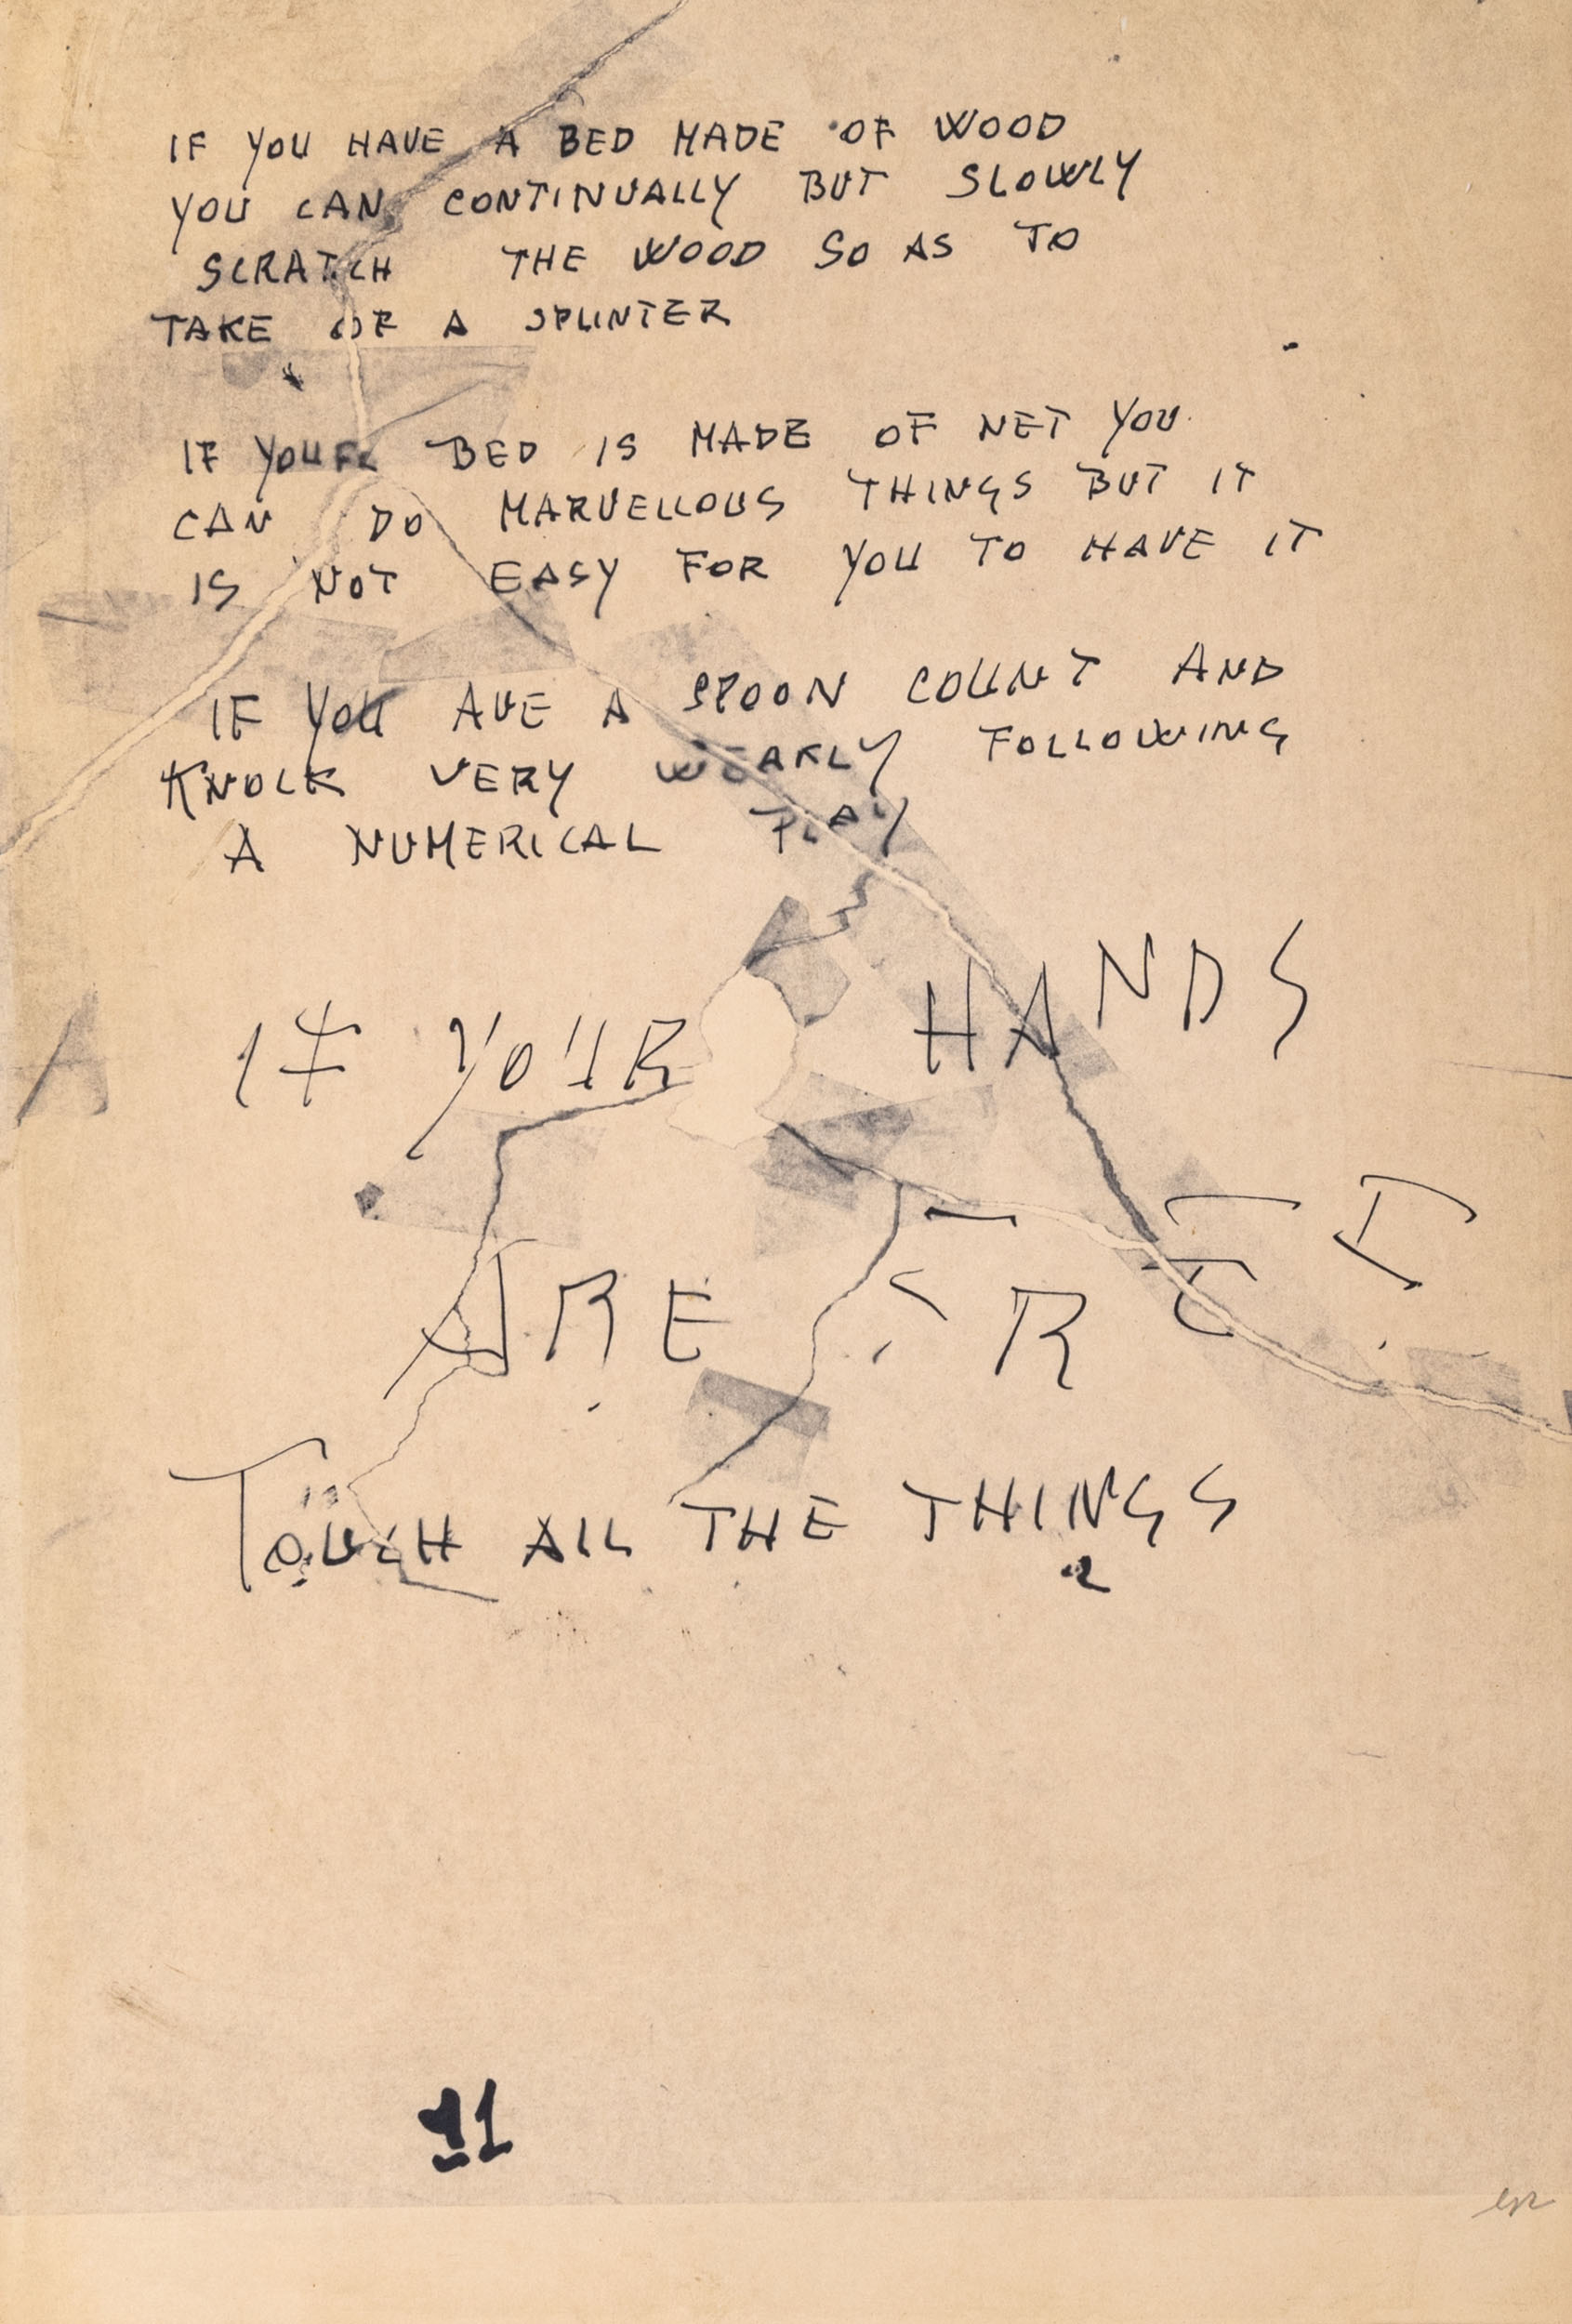 IF YOU HAVE A BED MADE OF WOOD
YOU CAN CONTINUALLY BUT SLOWLY
SCRATCH THE WOOD SO AS TO
TAKE OF A SPLINTER
IF YOUR BED IS MADE OF NET YOU
CAN DO MARVELLOUS THINGS BUT IT
IS NOT EASY FOR YOU TO HAVE IT
IF YOU AVE A SPOON COUNT AND
KNOCK VERY WEAKLY FOLLOWING
A NUMERICAL PLAY
IF YOUR HANDS
ARE
TOUCH ALL THE THINGS